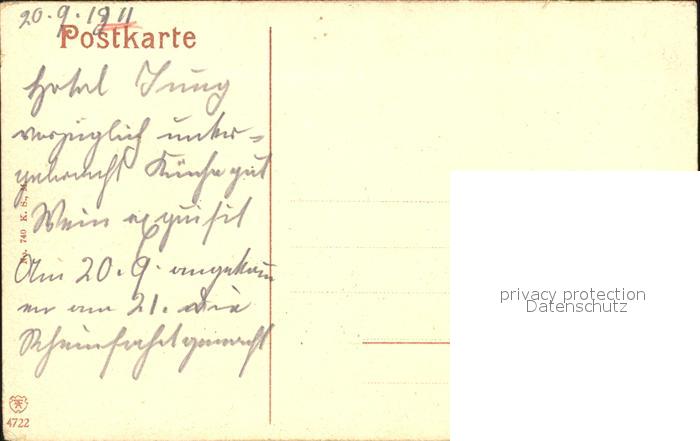 20.9.1911
Postkarte
Hotel Jung
vorzüglich unter=
gebracht Küche gut
Wein exquisit
Am 20.9. angekom
en am 21. die
Rheinfahrt gemacht
No. 740 K. S.,
4722
privacy protection
Datenschutz